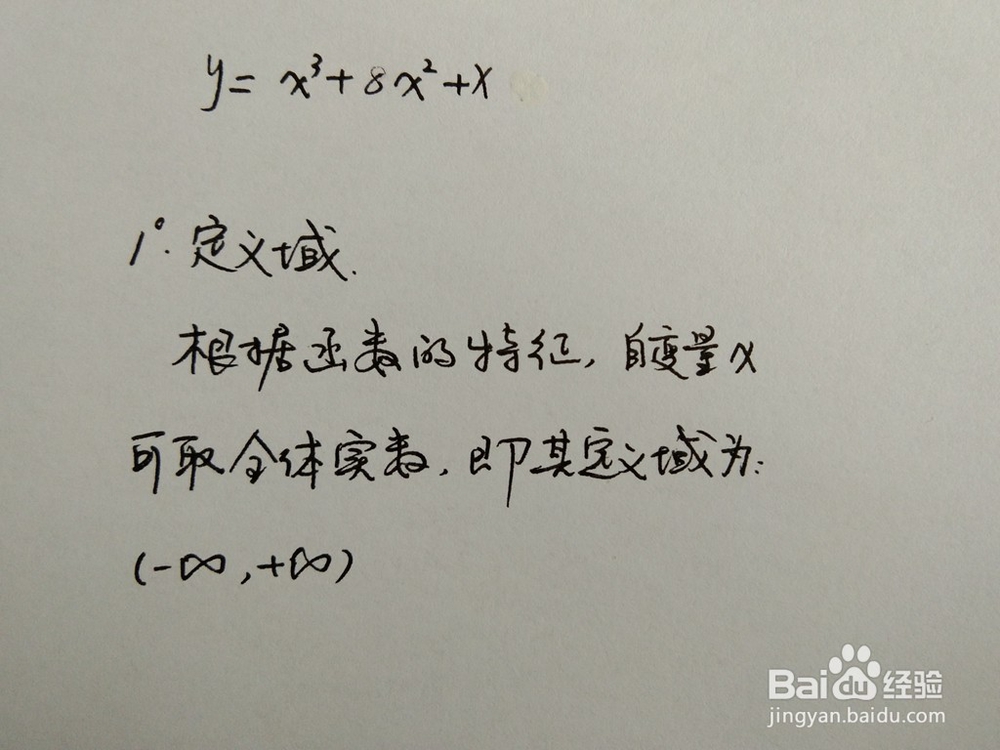 y= x³+8x²+x
1°. 定义域.
根据函数的特征, 自变量x
可取全体实数, 即其定义域为:
(-∞,+∞)
Baidu经验
jingyan.baidu.com